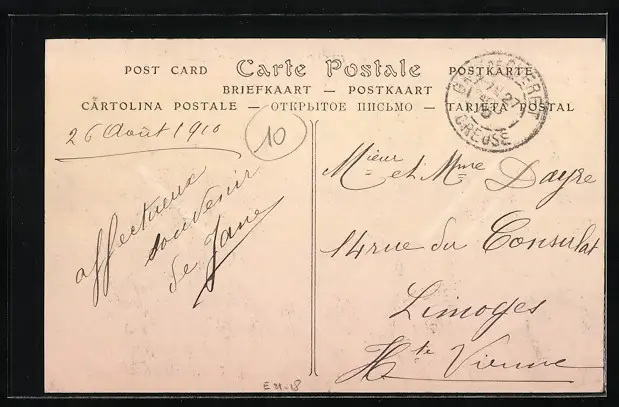 POST CARD Carte Postale POSTKARTE
BRIEFKAART — POSTKAART
CARTOLINA POSTALE — ОТКРЫТОЕ ПИСЬМО — TARJETA POSTAL
CREUSE
26 Août 1910
10
affectueux
souvenir
de Jane
Mieur et Mme Dayre
14 rue du Consulat
Limoges
Hte Vienne